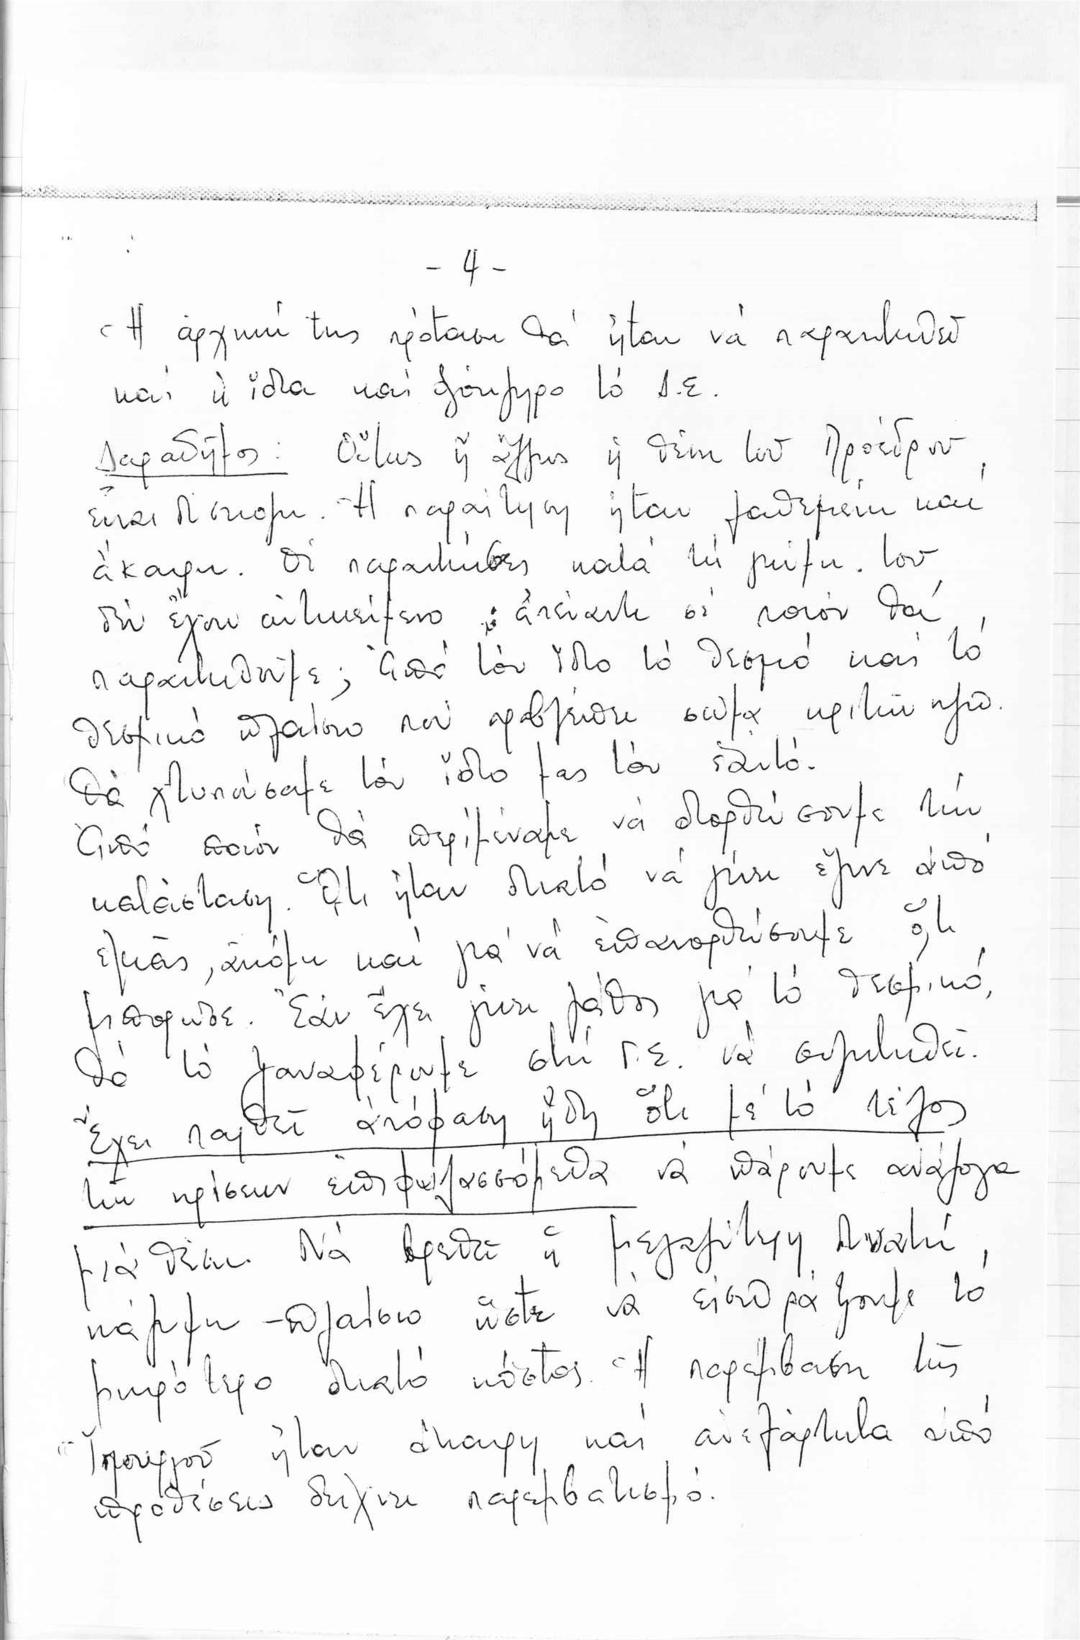 - 4 -
Ἡ ἀρχική της πρόταση θά ἦταν νά παραιτηθεῖ
καί ἡ ἴδια καί ὁλόκληρο τό Δ.Σ.
Δαραδῆμος: Οὕτως ἤ ἄλλως ἡ θέση τοῦ Προέδρου
εἶναι δύσκολη. Ἡ παραίτηση ἦταν λαθεμένη καί
ἄκαιρη. Οἱ παραιτήσεις κατά τή γνώμη του
δέν ἔχουν ἀντικείμενο. ἀπέναντι σέ ποιόν θά
παραιτηθοῦμε; Ἀπό τόν ἴδιο τό θεσμό καί τό
θεσμικό πλαίσιο πού προβλέπει σῶμα κριτῶν κλπ.
Θά χτυπούσαμε τόν ἴδιο μας τόν ἑαυτό.
Ἀπό ποιόν θά περιμέναμε νά διορθώσουμε τήν
κατάσταση. Ὅ,τι ἦταν δυνατό νά γίνει ἔγινε ἀπό
ἐμᾶς, ἀκόμη καί γιά νά ἐπανορθώσουμε ὅ,τι
μπορούσε. Ἐάν ἔχει γίνει λάθος γιά τό θεσμικό,
θά τό ξαναφέρουμε στή Γ.Σ. νά συζητηθεῖ.
Ἔχει παρθεῖ ἀπόφαση ἤδη ὅτι μέ τό τέλος
τῶν κρίσεων ἐπιφυλασσόμεθα νά πάρουμε ἀνάλογα
μιά θέση. Νά βρεθεῖ ἡ μεγαλύτερη δυνατή
κάλυψη - πλαίσιο ὥστε νά εἰσπράξουμε τό
μικρότερο δυνατό κόστος. Ἡ παρέμβαση τῆς
Ὑπουργοῦ ἦταν ἄκαιρη καί ἀνεξάρτητα ἀπό
προθέσεις δείχνει παρεμβατισμό.